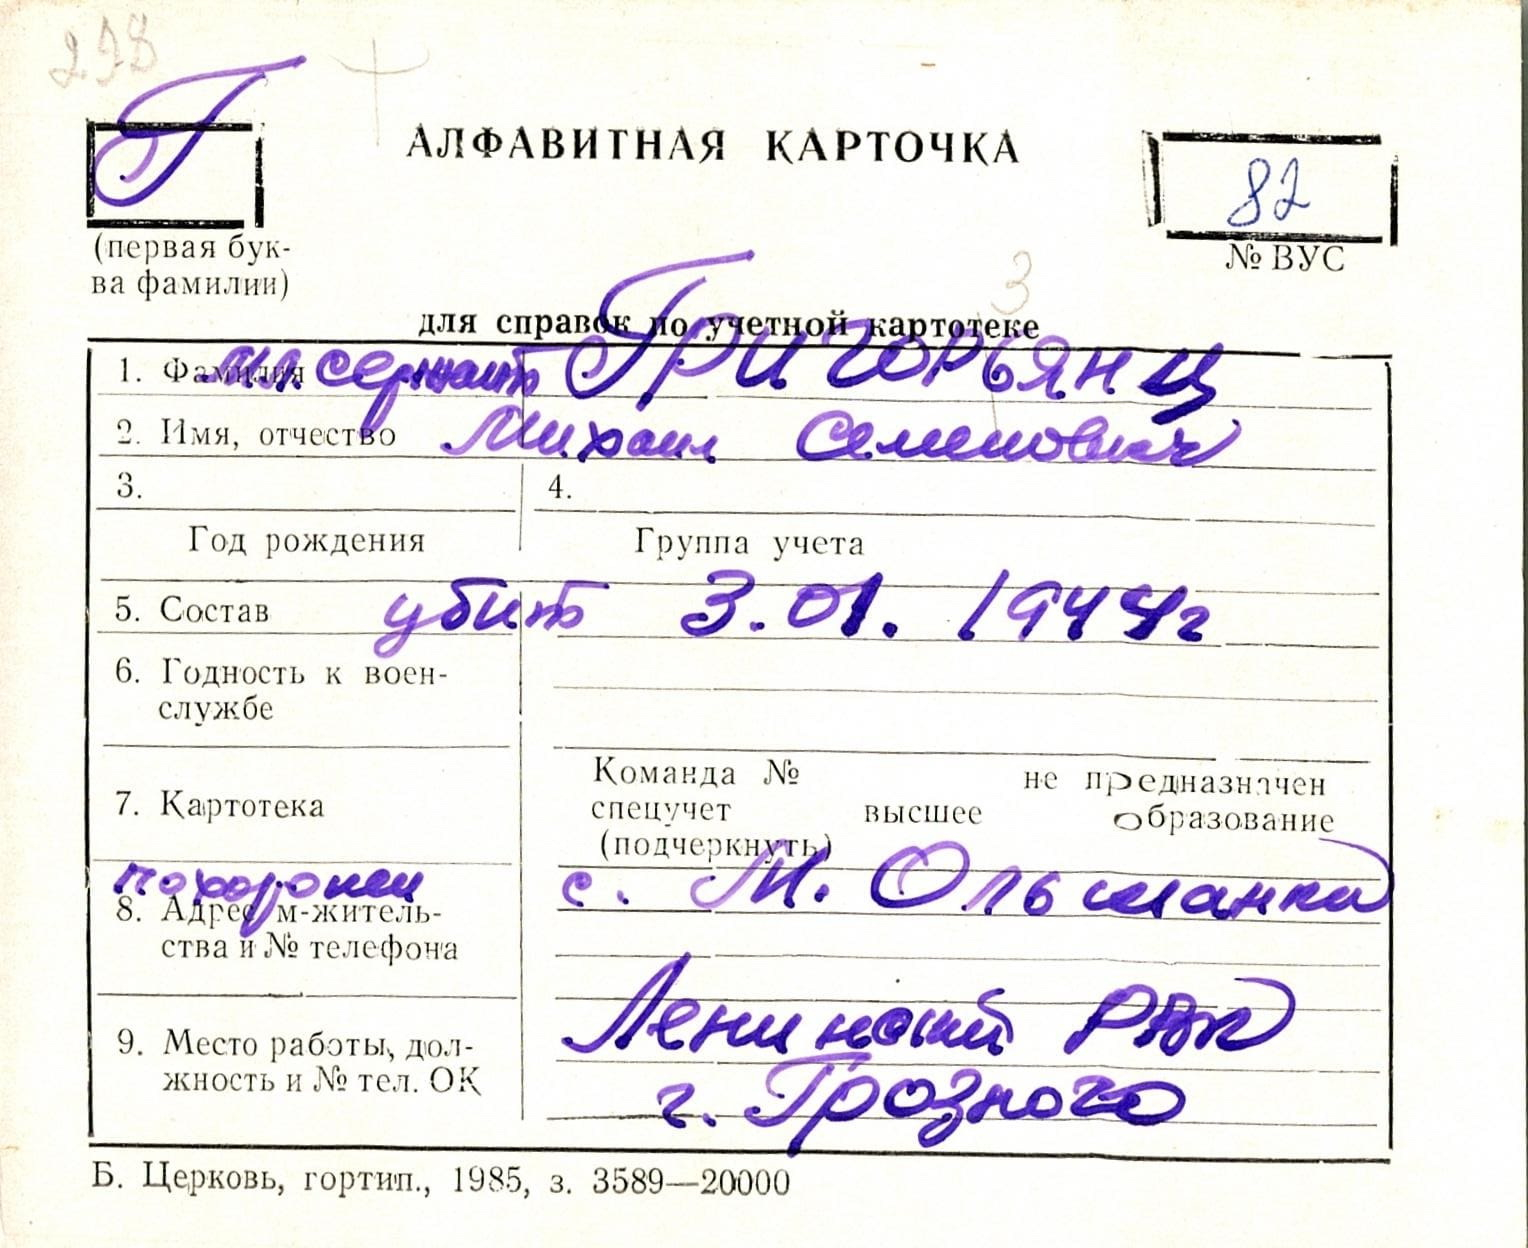 298
Г
АЛФАВИТНАЯ КАРТОЧКА
82
(первая бук-
ва фамилии)
№ ВУС
3
для справок по учетной картотеке
1. Фамилия мл. сержант ГРИГОРЬЯНЦ
2. Имя, отчество Михаил Семенович
3. 4.
Год рождения Группа учета
5. Состав убит 3.01.1944г
6. Годность к воен-
службе
Команда № не предназначен
7. Картотека спецучет высшее образование
(подчеркнуть)
похоронен с. М. Ольшанка
8. Адрес м-житель-
ства и № телефона
Ленинский РВК
9. Место работы, дол-
жность и № тел. ОК
г. Грозного
Б. Церковь, гортип., 1985, з. 3589—20000